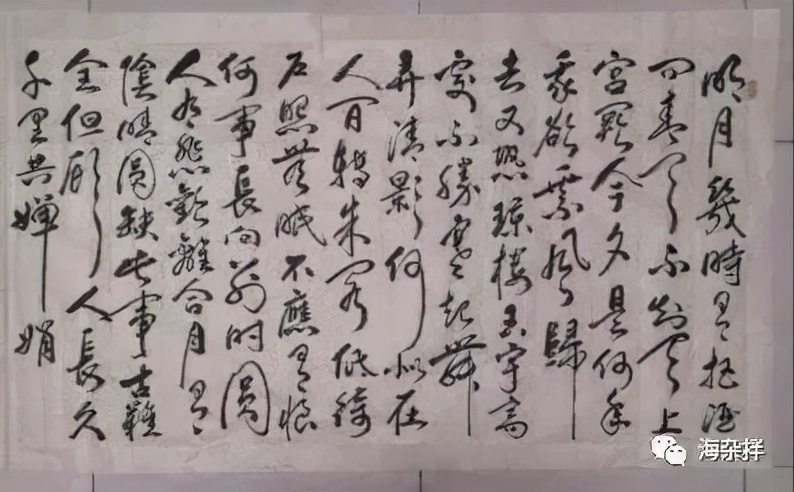 明月幾時有把酒
问青天不知天上
宫阙今夕是何年
我欲乘风歸
去又恐瓊楼玉宇高
處不勝寒起舞
弄清影何似在
人间轉朱阁低綺
户照無眠不應有恨
何事長向别时圆
人有悲歡離合月有
陰晴圆缺此事古難
全但願人長久
千里共嬋娟
海杂择